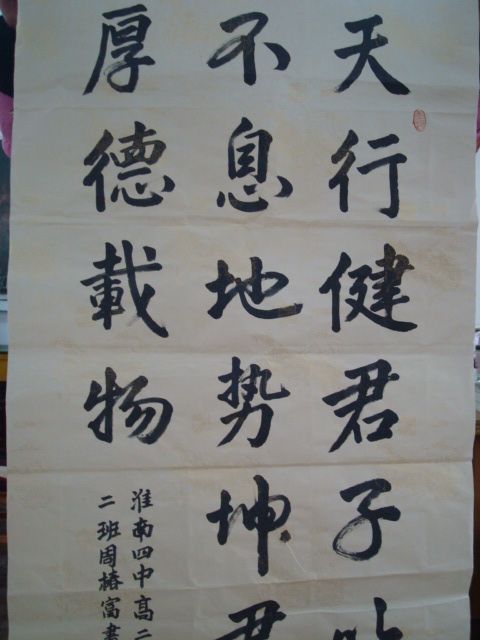 天行健君子
不息地势坤君
厚德載物
淮南四中高二
二班周椿富書